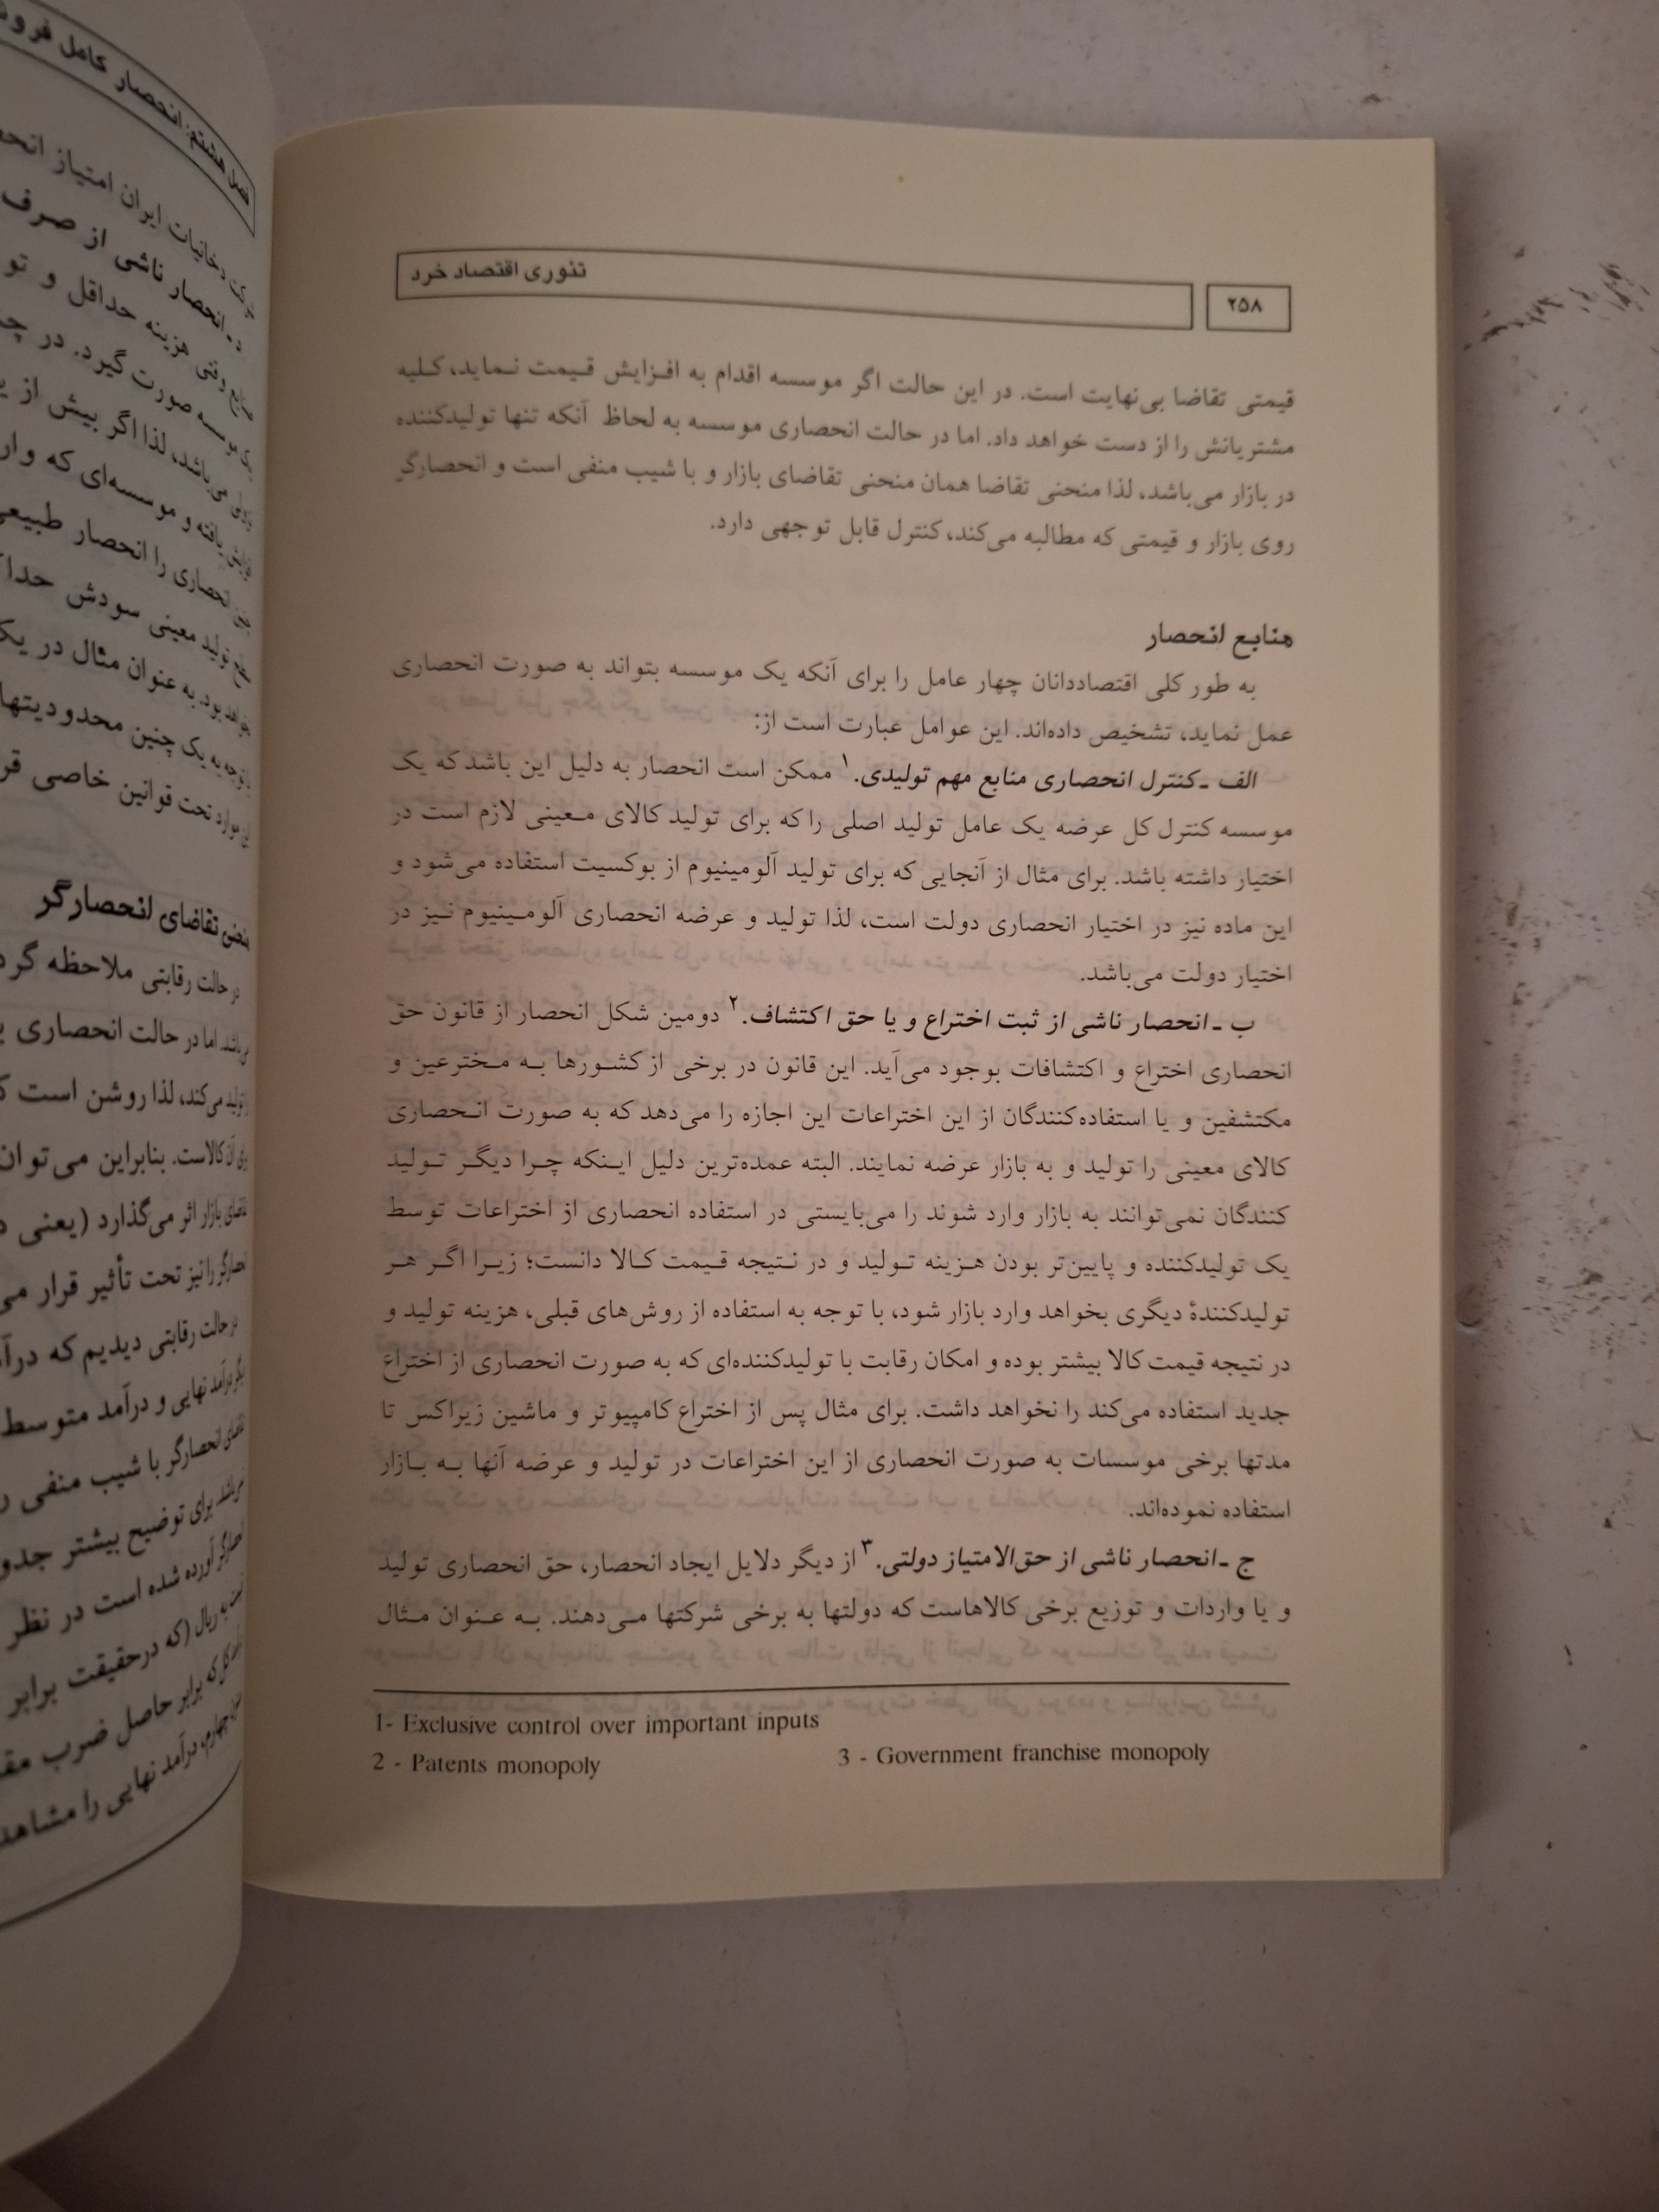 ۲۵۸
تئوری اقتصاد خرد
قیمتی تقاضا بی‌نهایت است. در این حالت اگر موسسه اقدام به افزایش قیمت نماید، کلیه
مشتریانش را از دست خواهد داد. اما در حالت انحصاری موسسه به لحاظ آنکه تنها تولیدکننده
در بازار می‌باشد، لذا منحنی تقاضا همان منحنی تقاضای بازار و با شیب منفی است و انحصارگر
روی بازار و قیمتی که مطالبه می‌کند، کنترل قابل توجهی دارد.
منابع انحصار
به طور کلی اقتصاددانان چهار عامل را برای آنکه یک موسسه بتواند به صورت انحصاری
عمل نماید، تشخیص داده‌اند. این عوامل عبارت است از:
الف ـ کنترل انحصاری منابع مهم تولیدی.۱ ممکن است انحصار به دلیل این باشد که یک
موسسه کنترل کل عرضه یک عامل تولید اصلی را که برای تولید کالای معینی لازم است در
اختیار داشته باشد. برای مثال از آنجایی که برای تولید آلومینیوم از بوکسیت استفاده می‌شود و
این ماده نیز در اختیار انحصاری دولت است، لذا تولید و عرضه انحصاری آلومینیوم نیز در
اختیار دولت می‌باشد.
ب ـ انحصار ناشی از ثبت اختراع و یا حق اکتشاف.۲ دومین شکل انحصار از قانون حق
انحصاری اختراع و اکتشافات بوجود می‌آید. این قانون در برخی از کشورها به مخترعین و
مکتشفین و یا استفاده‌کنندگان از این اختراعات این اجازه را می‌دهد که به صورت انحصاری
کالای معینی را تولید و به بازار عرضه نمایند. البته عمده‌ترین دلیل اینکه چرا دیگر تولید
کنندگان نمی‌توانند به بازار وارد شوند را می‌بایستی در استفاده انحصاری از اختراعات توسط
یک تولیدکننده و پایین‌تر بودن هزینه تولید و در نتیجه قیمت کالا دانست؛ زیرا اگر هر
تولیدکنندهٔ دیگری بخواهد وارد بازار شود، با توجه به استفاده از روش‌های قبلی، هزینه تولید و
در نتیجه قیمت کالا بیشتر بوده و امکان رقابت با تولیدکننده‌ای که به صورت انحصاری از اختراع
جدید استفاده می‌کند را نخواهد داشت. برای مثال پس از اختراع کامپیوتر و ماشین زیراکس تا
مدتها برخی موسسات به صورت انحصاری از این اختراعات در تولید و عرضه آنها به بازار
استفاده نموده‌اند.
ج ـ انحصار ناشی از حق‌الامتیاز دولتی.۳ از دیگر دلایل ایجاد انحصار، حق انحصاری تولید
و یا واردات و توزیع برخی کالاهاست که دولتها به برخی شرکتها می‌دهند. به عنوان مثال
1- Exclusive control over important inputs
2 - Patents monopoly
3 - Government franchise monopoly
فصل هشتم: انحصار کامل
دخانیات ایران امتیاز
د ـ انحصار ناشی از صرف
وقتی هزینه حداقل و
موسسه صورت گیرد. در
می‌باشد، لذا اگر بیش از
یافته و موسسه‌ای که
انحصاری را انحصار
تولید معینی سودش
بود. به عنوان مثال در
توجه به یک چنین محدودیتها
موارد تحت قوانین خاصی
منحنی تقاضای انحصارگر
در حالت رقابتی ملاحظه
اما در حالت انحصاری
تولید می‌کند، لذا روشن است
آن کالاست. بنابراین می‌توان
تقاضای بازار اثر می‌گذارد (یعنی
انحصارگر را نیز تحت تأثیر قرار
در حالت رقابتی دیدیم که
درآمد نهایی و درآمد متوسط
تقاضای انحصارگر با شیب منفی
برای توضیح بیشتر
انحصارگر آورده شده است در نظر
ریال (که درحقیقت برابر
که برابر حاصل ضرب
چهارم، درآمد نهایی را